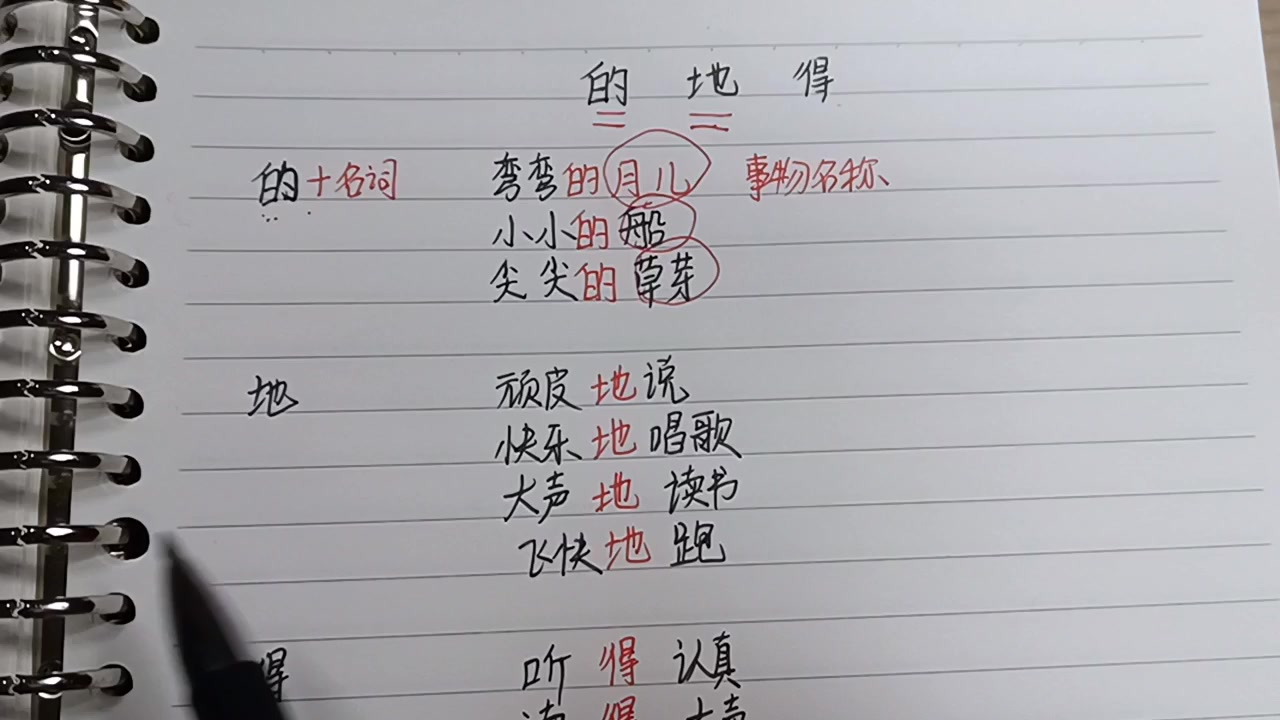 的 地 得
的+名词 弯弯的月儿 事物名称
小小的船
尖尖的草芽
地 顽皮地说
快乐地唱歌
大声地读书
飞快地跑
得 听得认真
得大声